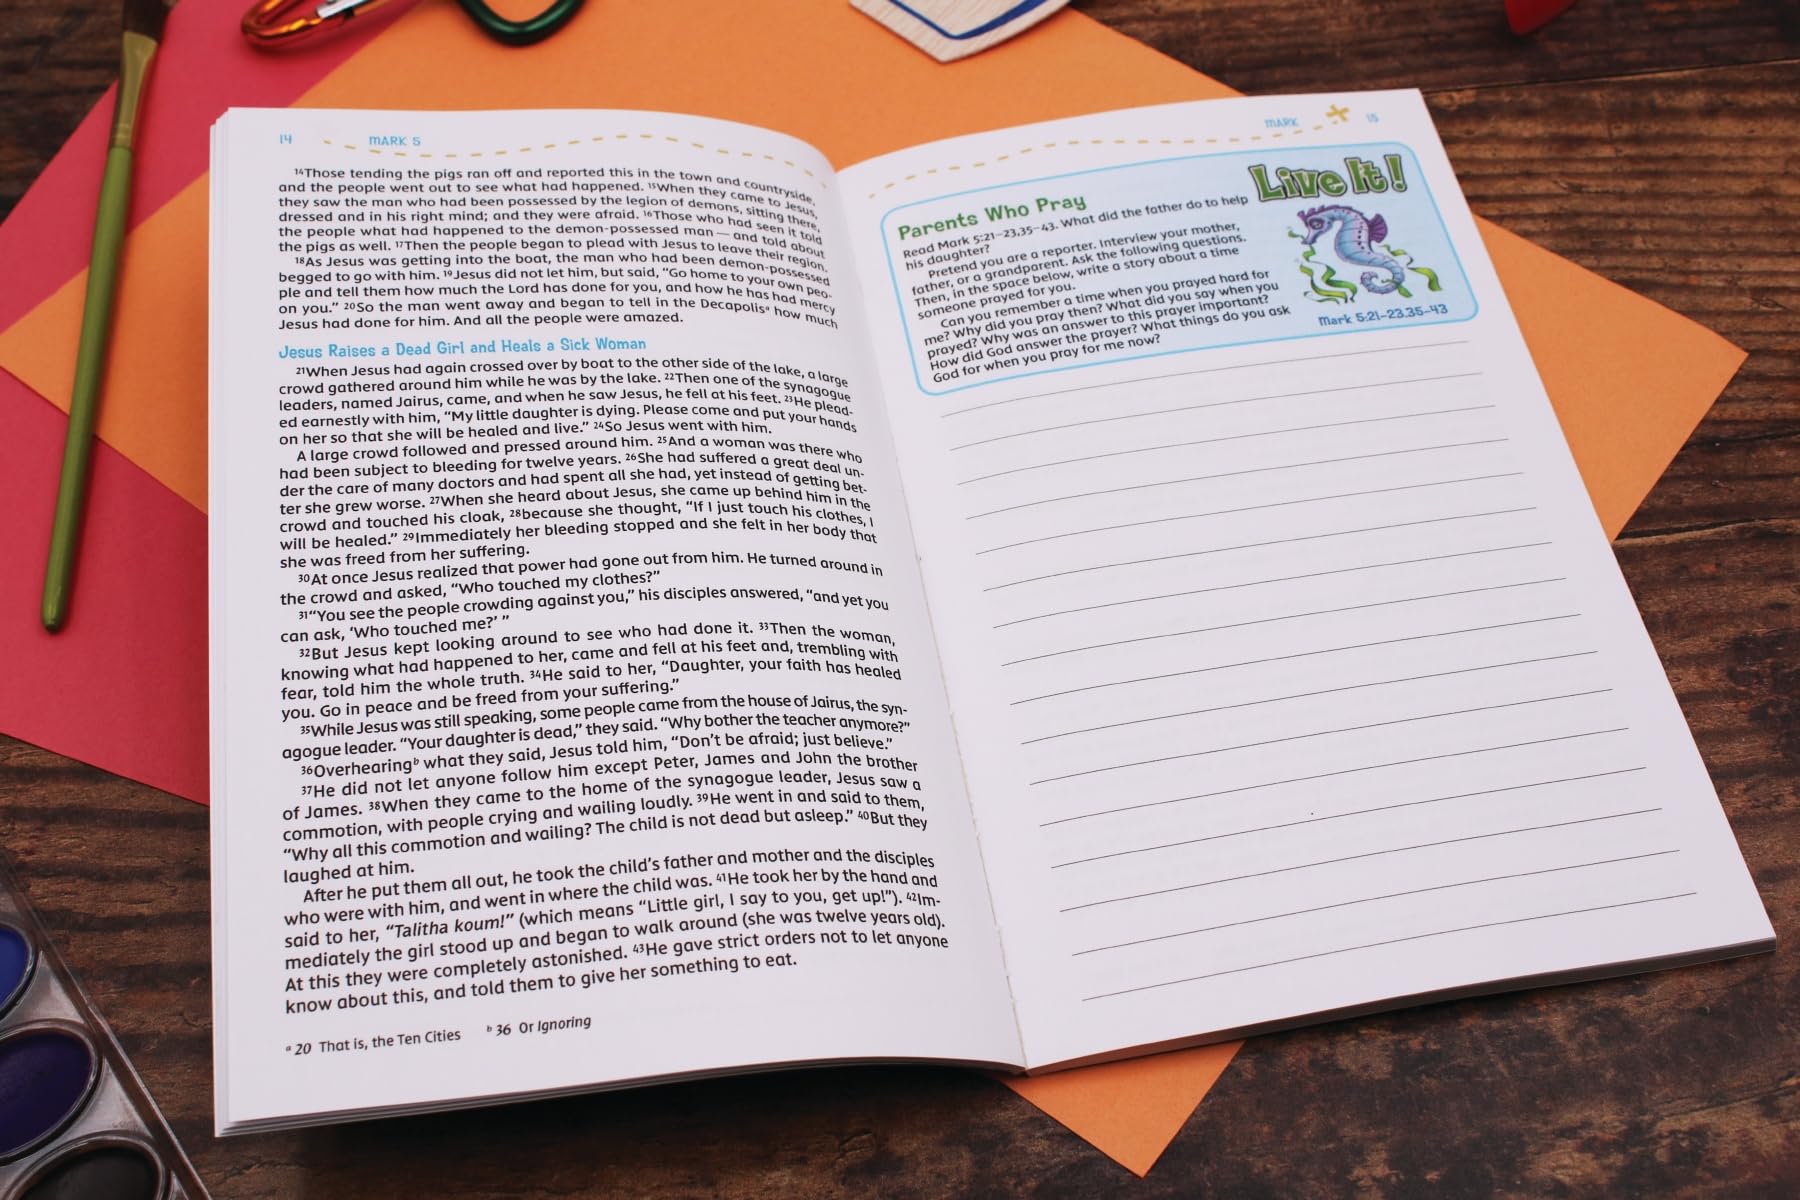 14 MARK 5
¹⁴Those tending the pigs ran off and reported this in the town and countryside,
and the people went out to see what had happened. ¹⁵When they came to Jesus,
they saw the man who had been possessed by the legion of demons, sitting there,
dressed and in his right mind; and they were afraid. ¹⁶Those who had seen it told
the people what had happened to the demon-possessed man — and told about
the pigs as well. ¹⁷Then the people began to plead with Jesus to leave their region.
¹⁸As Jesus was getting into the boat, the man who had been demon-possessed
begged to go with him. ¹⁹Jesus did not let him, but said, “Go home to your own peo-
ple and tell them how much the Lord has done for you, and how he has had mercy
on you.” ²⁰So the man went away and began to tell in the Decapolisᵃ how much
Jesus had done for him. And all the people were amazed.
Jesus Raises a Dead Girl and Heals a Sick Woman
²¹When Jesus had again crossed over by boat to the other side of the lake, a large
crowd gathered around him while he was by the lake. ²²Then one of the synagogue
leaders, named Jairus, came, and when he saw Jesus, he fell at his feet. ²³He plead-
ed earnestly with him, “My little daughter is dying. Please come and put your hands
on her so that she will be healed and live.” ²⁴So Jesus went with him.
A large crowd followed and pressed around him. ²⁵And a woman was there who
had been subject to bleeding for twelve years. ²⁶She had suffered a great deal un-
der the care of many doctors and had spent all she had, yet instead of getting bet-
ter she grew worse. ²⁷When she heard about Jesus, she came up behind him in the
crowd and touched his cloak, ²⁸because she thought, “If I just touch his clothes, I
will be healed.” ²⁹Immediately her bleeding stopped and she felt in her body that
she was freed from her suffering.
³⁰At once Jesus realized that power had gone out from him. He turned around in
the crowd and asked, “Who touched my clothes?”
³¹“You see the people crowding against you,” his disciples answered, “and yet you
can ask, ‘Who touched me?’ ”
³²But Jesus kept looking around to see who had done it. ³³Then the woman,
knowing what had happened to her, came and fell at his feet and, trembling with
fear, told him the whole truth. ³⁴He said to her, “Daughter, your faith has healed
you. Go in peace and be freed from your suffering.”
³⁵While Jesus was still speaking, some people came from the house of Jairus, the syn-
agogue leader. “Your daughter is dead,” they said. “Why bother the teacher anymore?”
³⁶Overhearingᵇ what they said, Jesus told him, “Don’t be afraid; just believe.”
³⁷He did not let anyone follow him except Peter, James and John the brother
of James. ³⁸When they came to the home of the synagogue leader, Jesus saw a
commotion, with people crying and wailing loudly. ³⁹He went in and said to them,
“Why all this commotion and wailing? The child is not dead but asleep.” ⁴⁰But they
laughed at him.
After he put them all out, he took the child’s father and mother and the disciples
who were with him, and went in where the child was. ⁴¹He took her by the hand and
said to her, “Talitha koum!” (which means “Little girl, I say to you, get up!”). ⁴²Im-
mediately the girl stood up and began to walk around (she was twelve years old).
At this they were completely astonished. ⁴³He gave strict orders not to let anyone
know about this, and told them to give her something to eat.
ᵃ 20 That is, the Ten Cities ᵇ 36 Or Ignoring
MARK 15
Live It!
Parents Who Pray
Read Mark 5:21–23,35–43. What did the father do to help
his daughter?
Pretend you are a reporter. Interview your mother,
father, or a grandparent. Ask the following questions.
Then, in the space below, write a story about a time
someone prayed for you.
Can you remember a time when you prayed hard for
me? Why did you pray then? What did you say when you
prayed? Why was an answer to this prayer important?
How did God answer the prayer? What things do you ask
God for when you pray for me now?
Mark 5:21–23,35–43